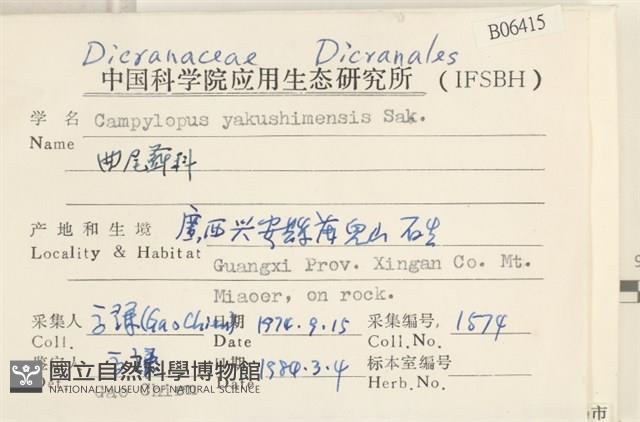 B06415
Dicranaceae Dicranales
中国科学院应用生态研究所 (IFSBH)
学名 Campylopus yakushimensis Sak.
Name
曲尾藓科
产地和生境 廣西兴安縣苗兒山 石生
Locality & Habitat Guangxi Prov. Xingan Co. Mt.
Miaoer, on rock.
采集人 高謙(Gao Chien) 日期 1974.9.15 采集编号, 1574
Coll. Date Coll.No.
鉴定人 高謙 日期 1984.3.4 标本室编号
Det. Gao Chien Date Herb.No.
國立自然科學博物館
NATIONAL MUSEUM OF NATURAL SCIENCE
市